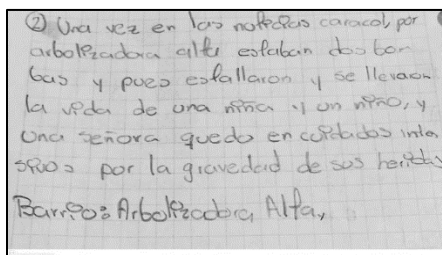 ② Una vez en las noticias caracol, por
arbolizadora alta estaban dos bom
bas y pues estallaron y se llevaron
la vida de una niña y un niño, y
una señora quedo en cuidados inten
sivos por la gravedad de sus heridas
Barrio: Arbolizadora Alta,